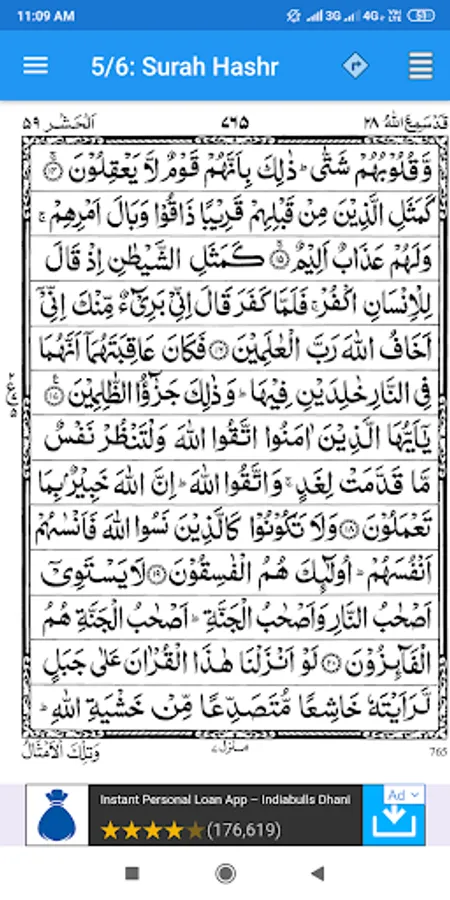 11:09 AM 3G 4G+ VoLTE 53
5/6: Surah Hashr
قَدْسَمِعَ اللّٰهُ ٢٨ ٧٦٥ اَلْحَشْر ٥٩
وَّقُلُوْبُهُمْ شَتّٰى ؕ ذٰلِكَ بِاَنَّهُمْ قَوْمٌ لَّا يَعْقِلُوْنَ ۝۱۴
كَمَثَلِ الَّذِيْنَ مِنْ قَبْلِهِمْ قَرِيْبًا ذَاقُوْا وَبَالَ اَمْرِهِمْ ۚ
وَلَهُمْ عَذَابٌ اَلِيْمٌ ۝۱۵ كَمَثَلِ الشَّيْطٰنِ اِذْ قَالَ
لِلْاِنْسَانِ اكْفُرْ ۚ فَلَمَّا كَفَرَ قَالَ اِنِّىْ بَرِىْٓءٌ مِّنْكَ اِنِّىْٓ
اَخَافُ اللّٰهَ رَبَّ الْعٰلَمِيْنَ ۝۱۶ فَكَانَ عَاقِبَتَهُمَآ اَنَّهُمَا
فِى النَّارِ خٰلِدَيْنِ فِيْهَا ؕ وَذٰلِكَ جَزٰٓؤُا الظّٰلِمِيْنَ ۝۱۷
يٰٓاَيُّهَا الَّذِيْنَ اٰمَنُوا اتَّقُوا اللّٰهَ وَلْتَنْظُرْ نَفْسٌ
مَّا قَدَّمَتْ لِغَدٍ ۚ وَاتَّقُوا اللّٰهَ ؕ اِنَّ اللّٰهَ خَبِيْرٌۢ بِمَا
تَعْمَلُوْنَ ۝۱۸ وَلَا تَكُوْنُوْا كَالَّذِيْنَ نَسُوا اللّٰهَ فَاَنْسٰىهُمْ
اَنْفُسَهُمْ ؕ اُولٰٓئِكَ هُمُ الْفٰسِقُوْنَ ۝۱۹ لَا يَسْتَوِىْٓ
اَصْحٰبُ النَّارِ وَاَصْحٰبُ الْجَنَّةِ ؕ اَصْحٰبُ الْجَنَّةِ هُمُ
الْفَآئِزُوْنَ ۝۲۰ لَوْ اَنْزَلْنَا هٰذَا الْقُرْاٰنَ عَلٰى جَبَلٍ
لَّرَاَيْتَهٗ خَاشِعًا مُّتَصَدِّعًا مِّنْ خَشْيَةِ اللّٰهِ ؕ
765 منزل ٧ وَتِلْكَ الْاَمْثَالُ
Ad
Instant Personal Loan App – Indiabulls Dhani
(176,619)